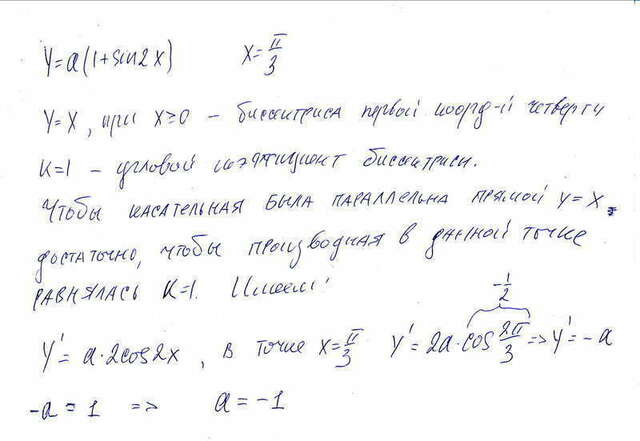 y=a(1+sin2x) x=π/3
y=x, при x≥0 - биссектриса первой коорд-й четверти
k=1 - угловой коэффициент биссектрисы.
Чтобы касательная была параллельна прямой y=x,
достаточно, чтобы производная в данной точке
равнялась k=1. Имеем:
-1/2
y'=a·2cos2x, в точке x=π/3 y'=2a·cos 2π/3 => y'=-a
-a=1 => a=-1